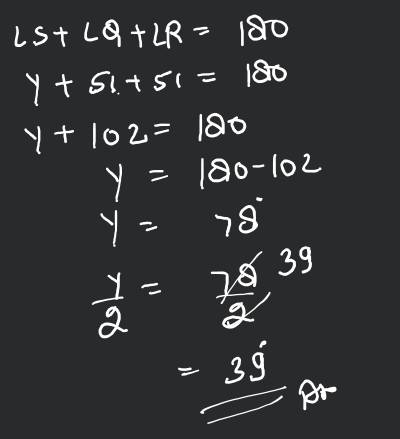 ∠S + ∠Q + ∠R = 180
Y + 51 + 51 = 180
Y + 102 = 180
Y = 180 - 102
Y = 78°
Y/2 = 78/2 39
= 39°